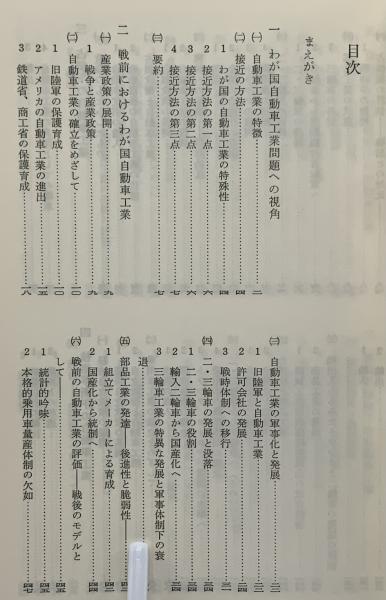 目次
まえがき
一 わが国自動車工業問題への視角
㈠ 自動車工業の特徴……二
㈡ 接近の方法……四
1 わが国の自動車工業の特殊性……四
2 接近方法の第一点……六
3 接近方法の第二点……六
4 接近方法の第三点……七
㈢ 要約……七
二 戦前におけるわが国自動車工業
㈠ 産業政策の展開……九
1 戦争と産業政策……九
㈡ 自動車工業の確立をめざして……一〇
1 旧陸軍の保護育成……一〇
2 アメリカの自動車工業の進出……一五
3 鉄道省、商工省の保護育成……一八
㈢ 自動車工業の軍事化と発展……
1 旧陸軍と自動車工業……
2 許可会社の発展……
3 戦時体制への移行……
㈣ 二・三輪車の発展と没落……
1 二・三輪車の役割……
2 輸入二輪車から国産化へ……
3 三輪車工業の特異な発展と軍事体制下の衰
退……
㈤ 部品工業の発達――後進性と脆弱性――……四三
1 組立てメーカーによる育成……四三
2 国産化から統制へ……四四
㈥ 戦前の自動車工業の評価――戦後のモデルと
して――……四五
1 統計的吟味……四五
2 本格的乗用車量産体制の欠如……四七